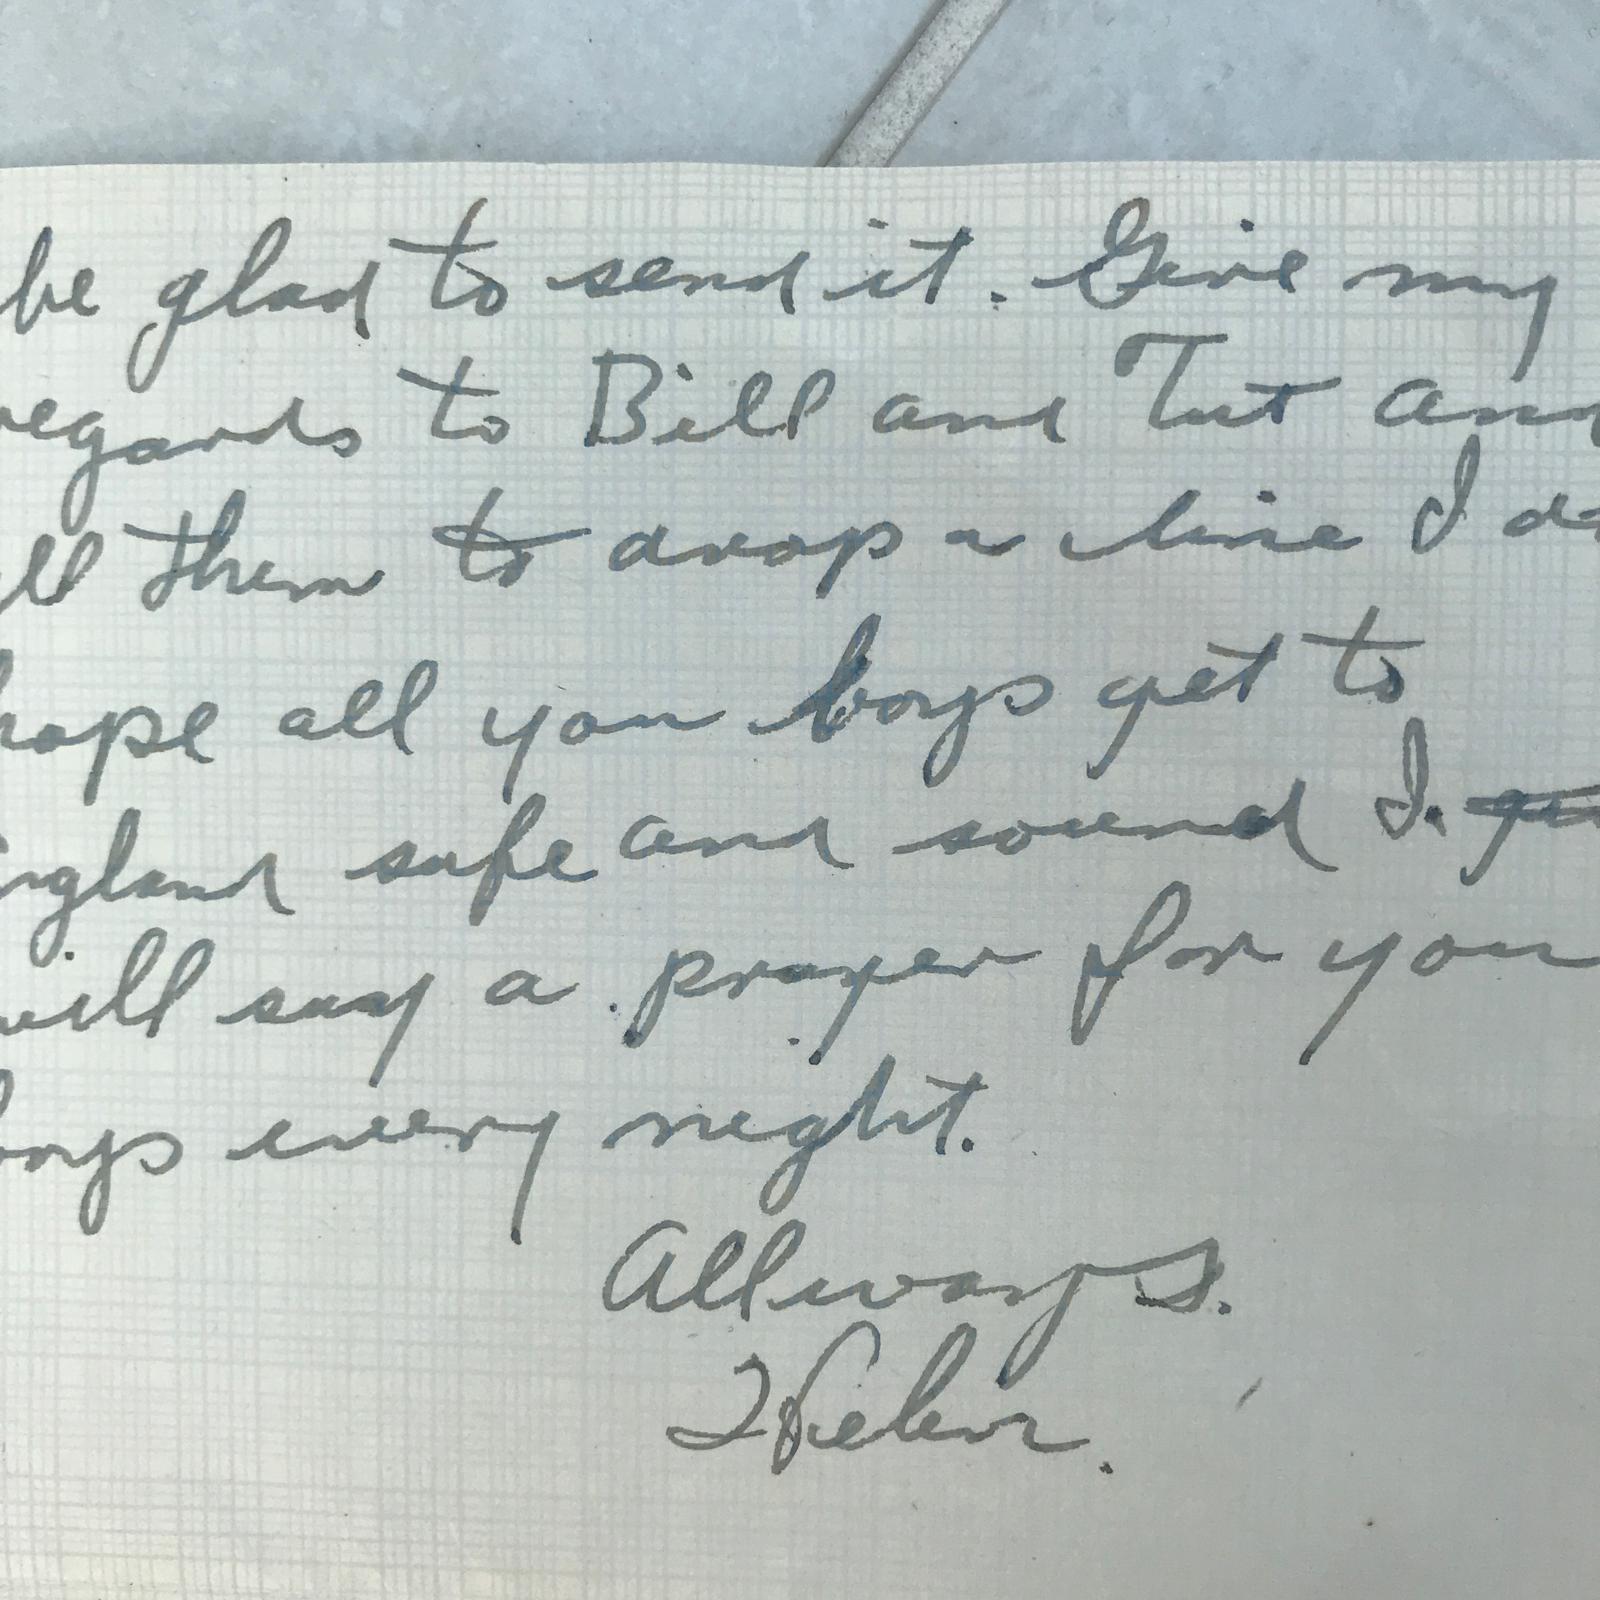 be glad to send it. Give my
regards to Bill and Tut and
tell them to drop a line I do
hope all you boys get to
England safe and sound I.
will say a prayer for you
boys every night.
Allways.
Helen.